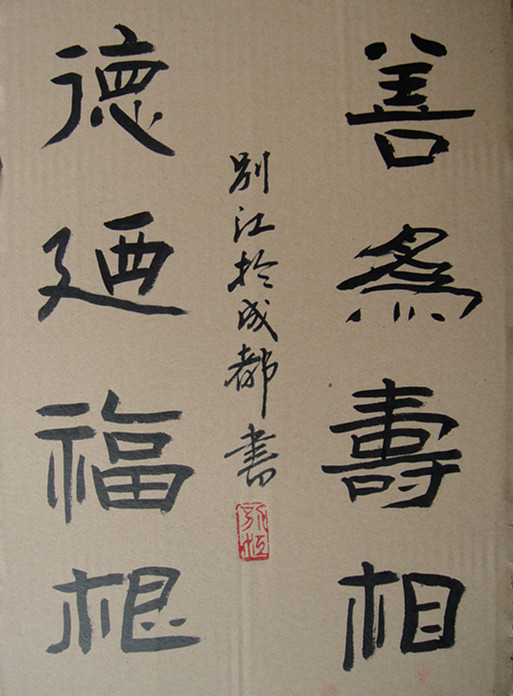 善為壽相
德廼福根
別江於成都書